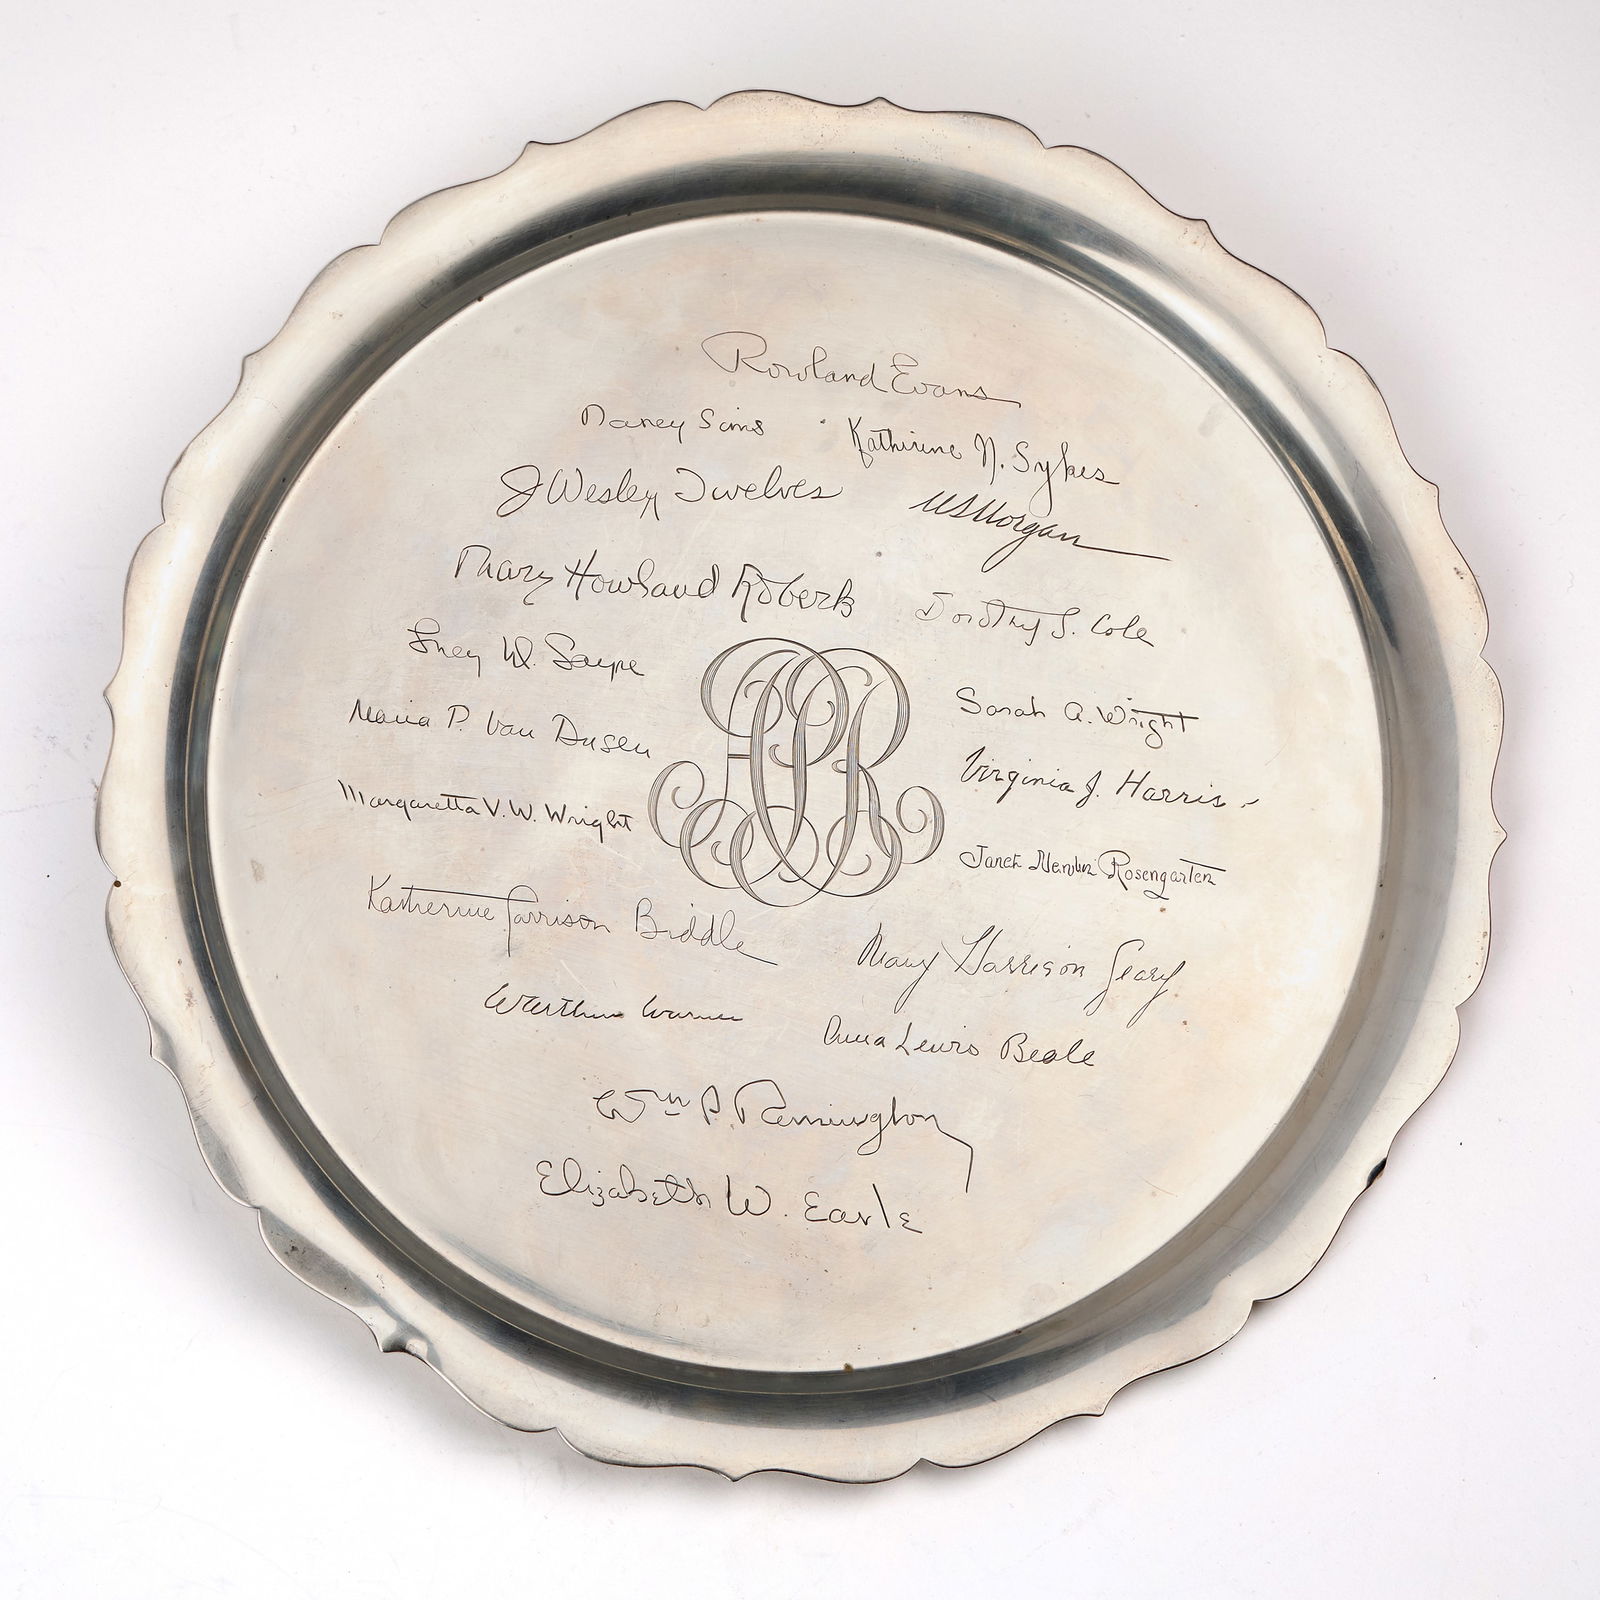 Rowland Evans
Nancy Sims Katherine N. Sykes
J Wesley Twelves Morgan
Mary Howland Roberts Dorothy S. Cole
Lucy W. Sayre
Sarah A. Wright
Maria P. Van Dusen
Virginia J. Harris
Margaretta V. W. Wright
Janet Rosengarten
Katherine Garrison Biddle
Mary Harrison Geary
Warner
Anna Lewis Beale
Wm P. Remington
Elizabeth W. Earle